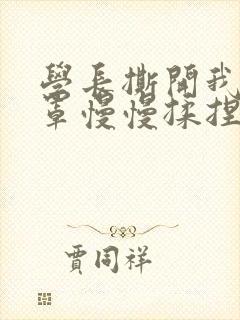 學長撕開我
罩慢慢揉捏
賈同祥